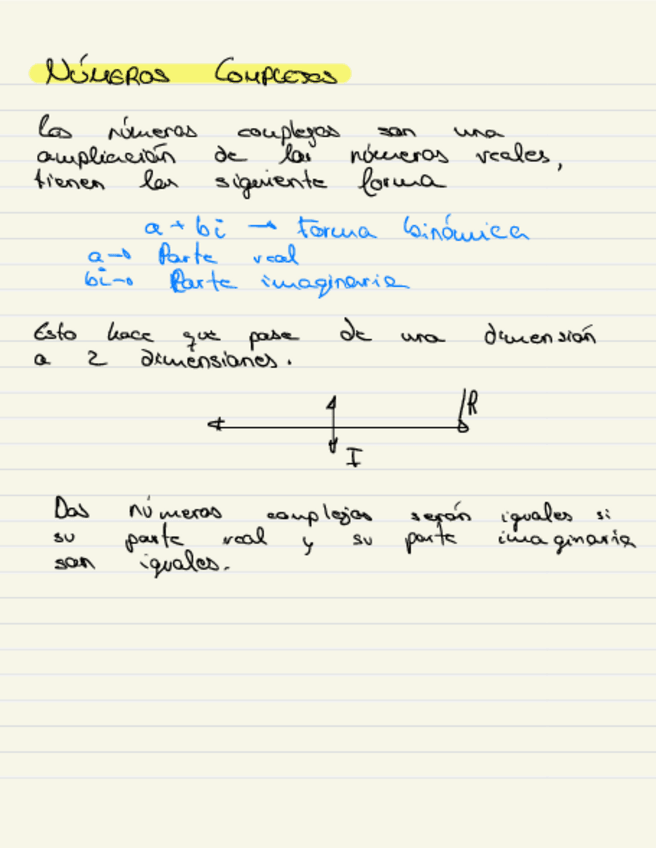 NÚMEROS COMPLEJOS
Los números complejos son una
ampliación de los números reales,
tienen la siguiente forma
a + bi → Forma binómica
a → Parte real
bi → Parte imaginaria
Esto hace que pase de una dimensión
a 2 dimensiones.
R
I
Dos números complejos serán iguales si
su parte real y su parte imaginaria
son iguales.